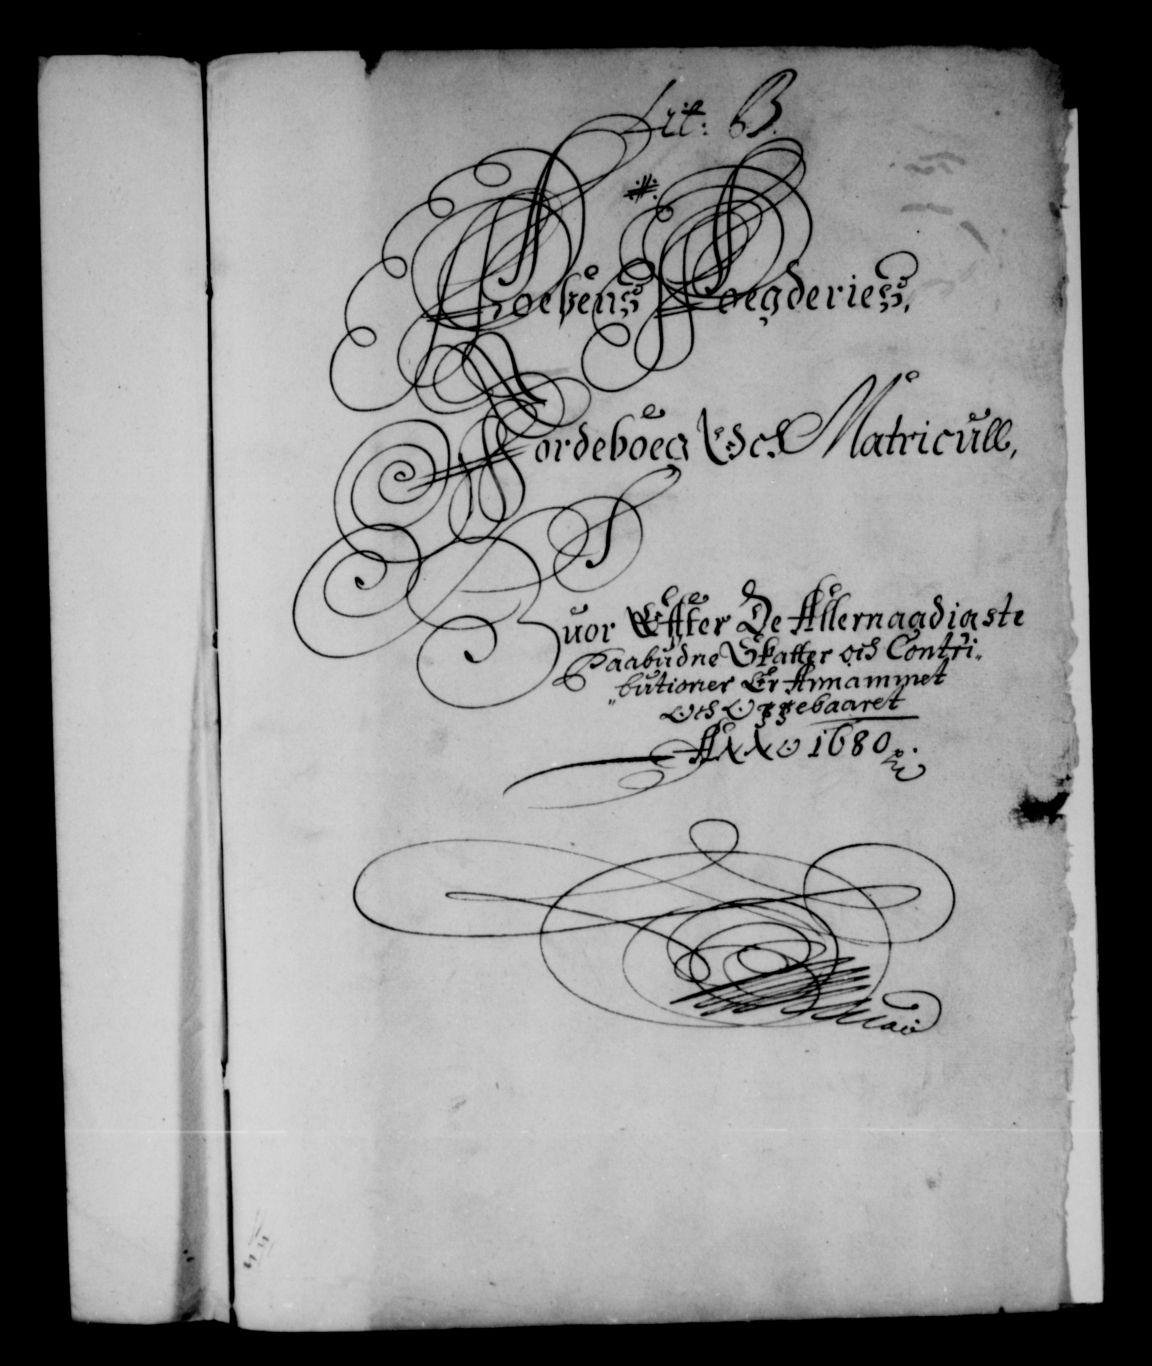 Lit: B.
Foegderiess,
Jordeboeg Och Matricull,
Huor Effter De Allernaadigste
Paabudne Skatter och Contri„
„butioner Er Annammet
Och Oppebaaret
Anno 1680